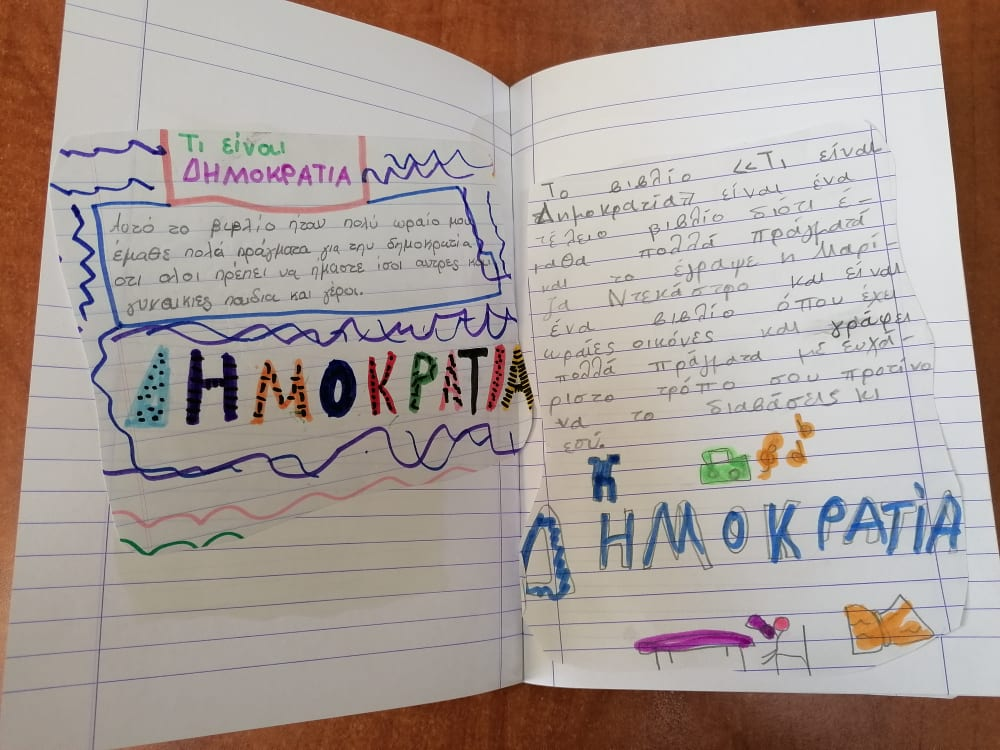 Τι είναι
ΔΗΜΟΚΡΑΤΙΑ
Αυτό το βιβλίο ήταν πολύ ωραίο μου
έμαθε πολά πράγματα για την δημοκρατία
οτι ολοι πρέπει να ημαστε ίσοι αντρες και
γυναικιες παιδια και γέροι.
ΔΗΜΟΚΡΑΤΙΑ
Το βιβλίο «Τι είναι
Δημοκρατία» είναι ένα
τέλειο βιβλίο διότι έ-
μαθα πολλά πράγματα
και το έγραψε η Μαρί-
ζα Ντεκάστρο και είναι
ένα βιβλίο όπου έχει
ωραίες οικόνες και γράφει
πολλά πράγματα μέ ευχά-
ριστο τρόπο σου προτίνο
να το διαβάσεις κι
εσύ.
Η
ΔΗΜΟΚΡΑΤΊΑ